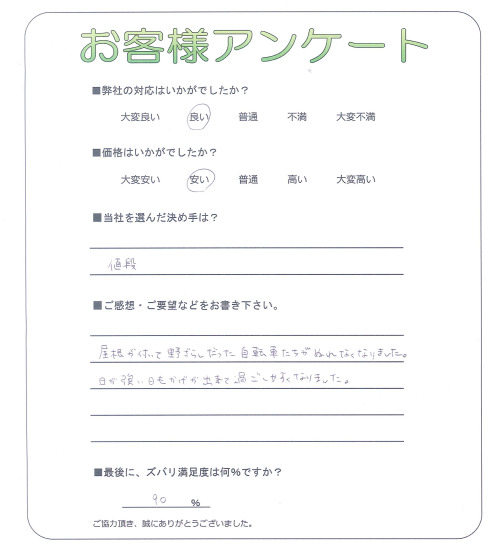 お客様アンケート
■弊社の対応はいかがでしたか？
大変良い 良い 普通 不満 大変不満
■価格はいかがでしたか？
大変安い 安い 普通 高い 大変高い
■当社を選んだ決め手は？
値段
■ご感想・ご要望などをお書き下さい。
屋根が付いて野ざらしだった自転車たちがぬれなくなりました。
日が強い日もかげが出来て過ごしやすくなりました。
■最後に、ズバリ満足度は何％ですか？
90 %
ご協力頂き、誠にありがとうございました。